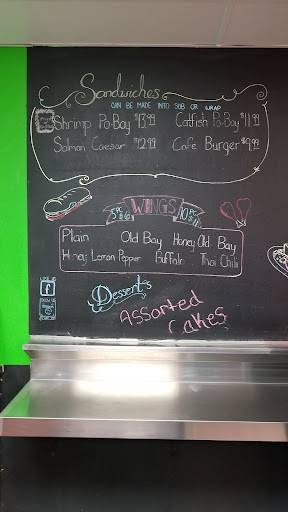 Sandwiches
CAN BE MADE INTO SUB OR WRAP
Shrimp Po-Boy $13.99 Catfish Po-Boy $11.99
Salmon Caesar $12.99 Cafe Burger $9.99
5pc WINGS 10pc
Plain Old Bay Honey Old Bay
Honey Lemon Pepper Buffalo Thai Chili
Desserts
Assorted
Cakes
LIKE US
f